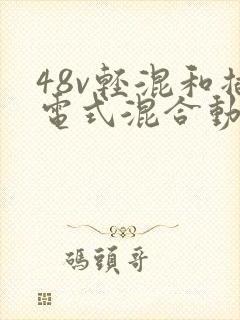 48v輕混和
電式混合動
碼頭哥